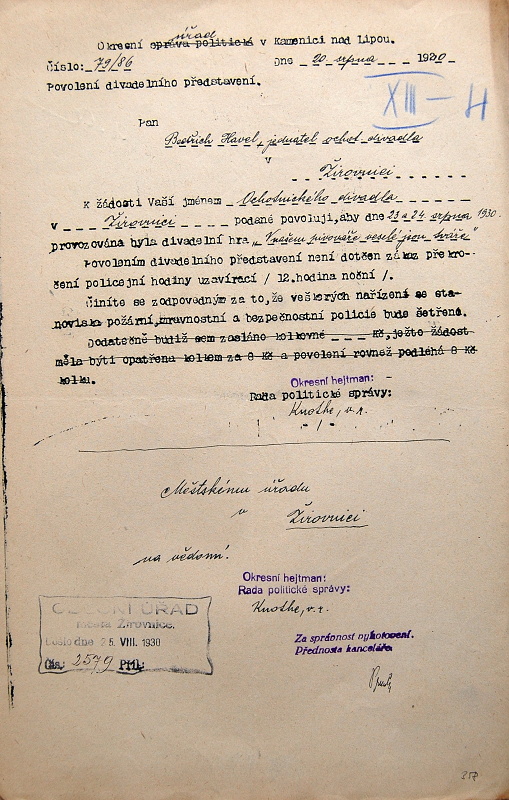 úřad
Okresní správa politická v Kamenici nad Lipou.
Číslo: 79/86 Dne 20 srpna 1930
Povolení divadelního představení.
XIII - H
Pan
Bedřich Havel, jednatel ochot. divadla
v
Žirovnici
K žádosti Vaší jménem Ochotnického divadla
v Žirovnici podané povoluji, aby dne 23 a 24 srpna 1930.
provozována byla divadelní hra „V našem pivováře veselé jsou tváře"
Povolením divadelního představení není dotčen zákaz překro-
čení policejní hodiny uzavírací / 12.hodina noční /.
Činíte se zodpovědným za to, že veškerých nařízení se sta-
noviska požární, mravnostní a bezpečnostní policie bude šetřeno.
Dodatečně budiž sem zasláno kolkovné Kč, ježto žádost
měla býti opatřena kolkem za 8 Kč a povolení rovněž podléhá 8 Kč
kolku.
Okresní hejtman:
Rada politické správy:
Knothe, v. r.
Městskému úřadu
v
Žirovnici
na vědomí.
Okresní hejtman:
Rada politické správy:
Knothe, v. r.
OBECNÍ ÚŘAD
města Žirovnice.
Došlo dne 25. VIII. 1930
Čís.: 2579 Příl.:
Za správnost vyhotovení.
Přednosta kanceláře.
257